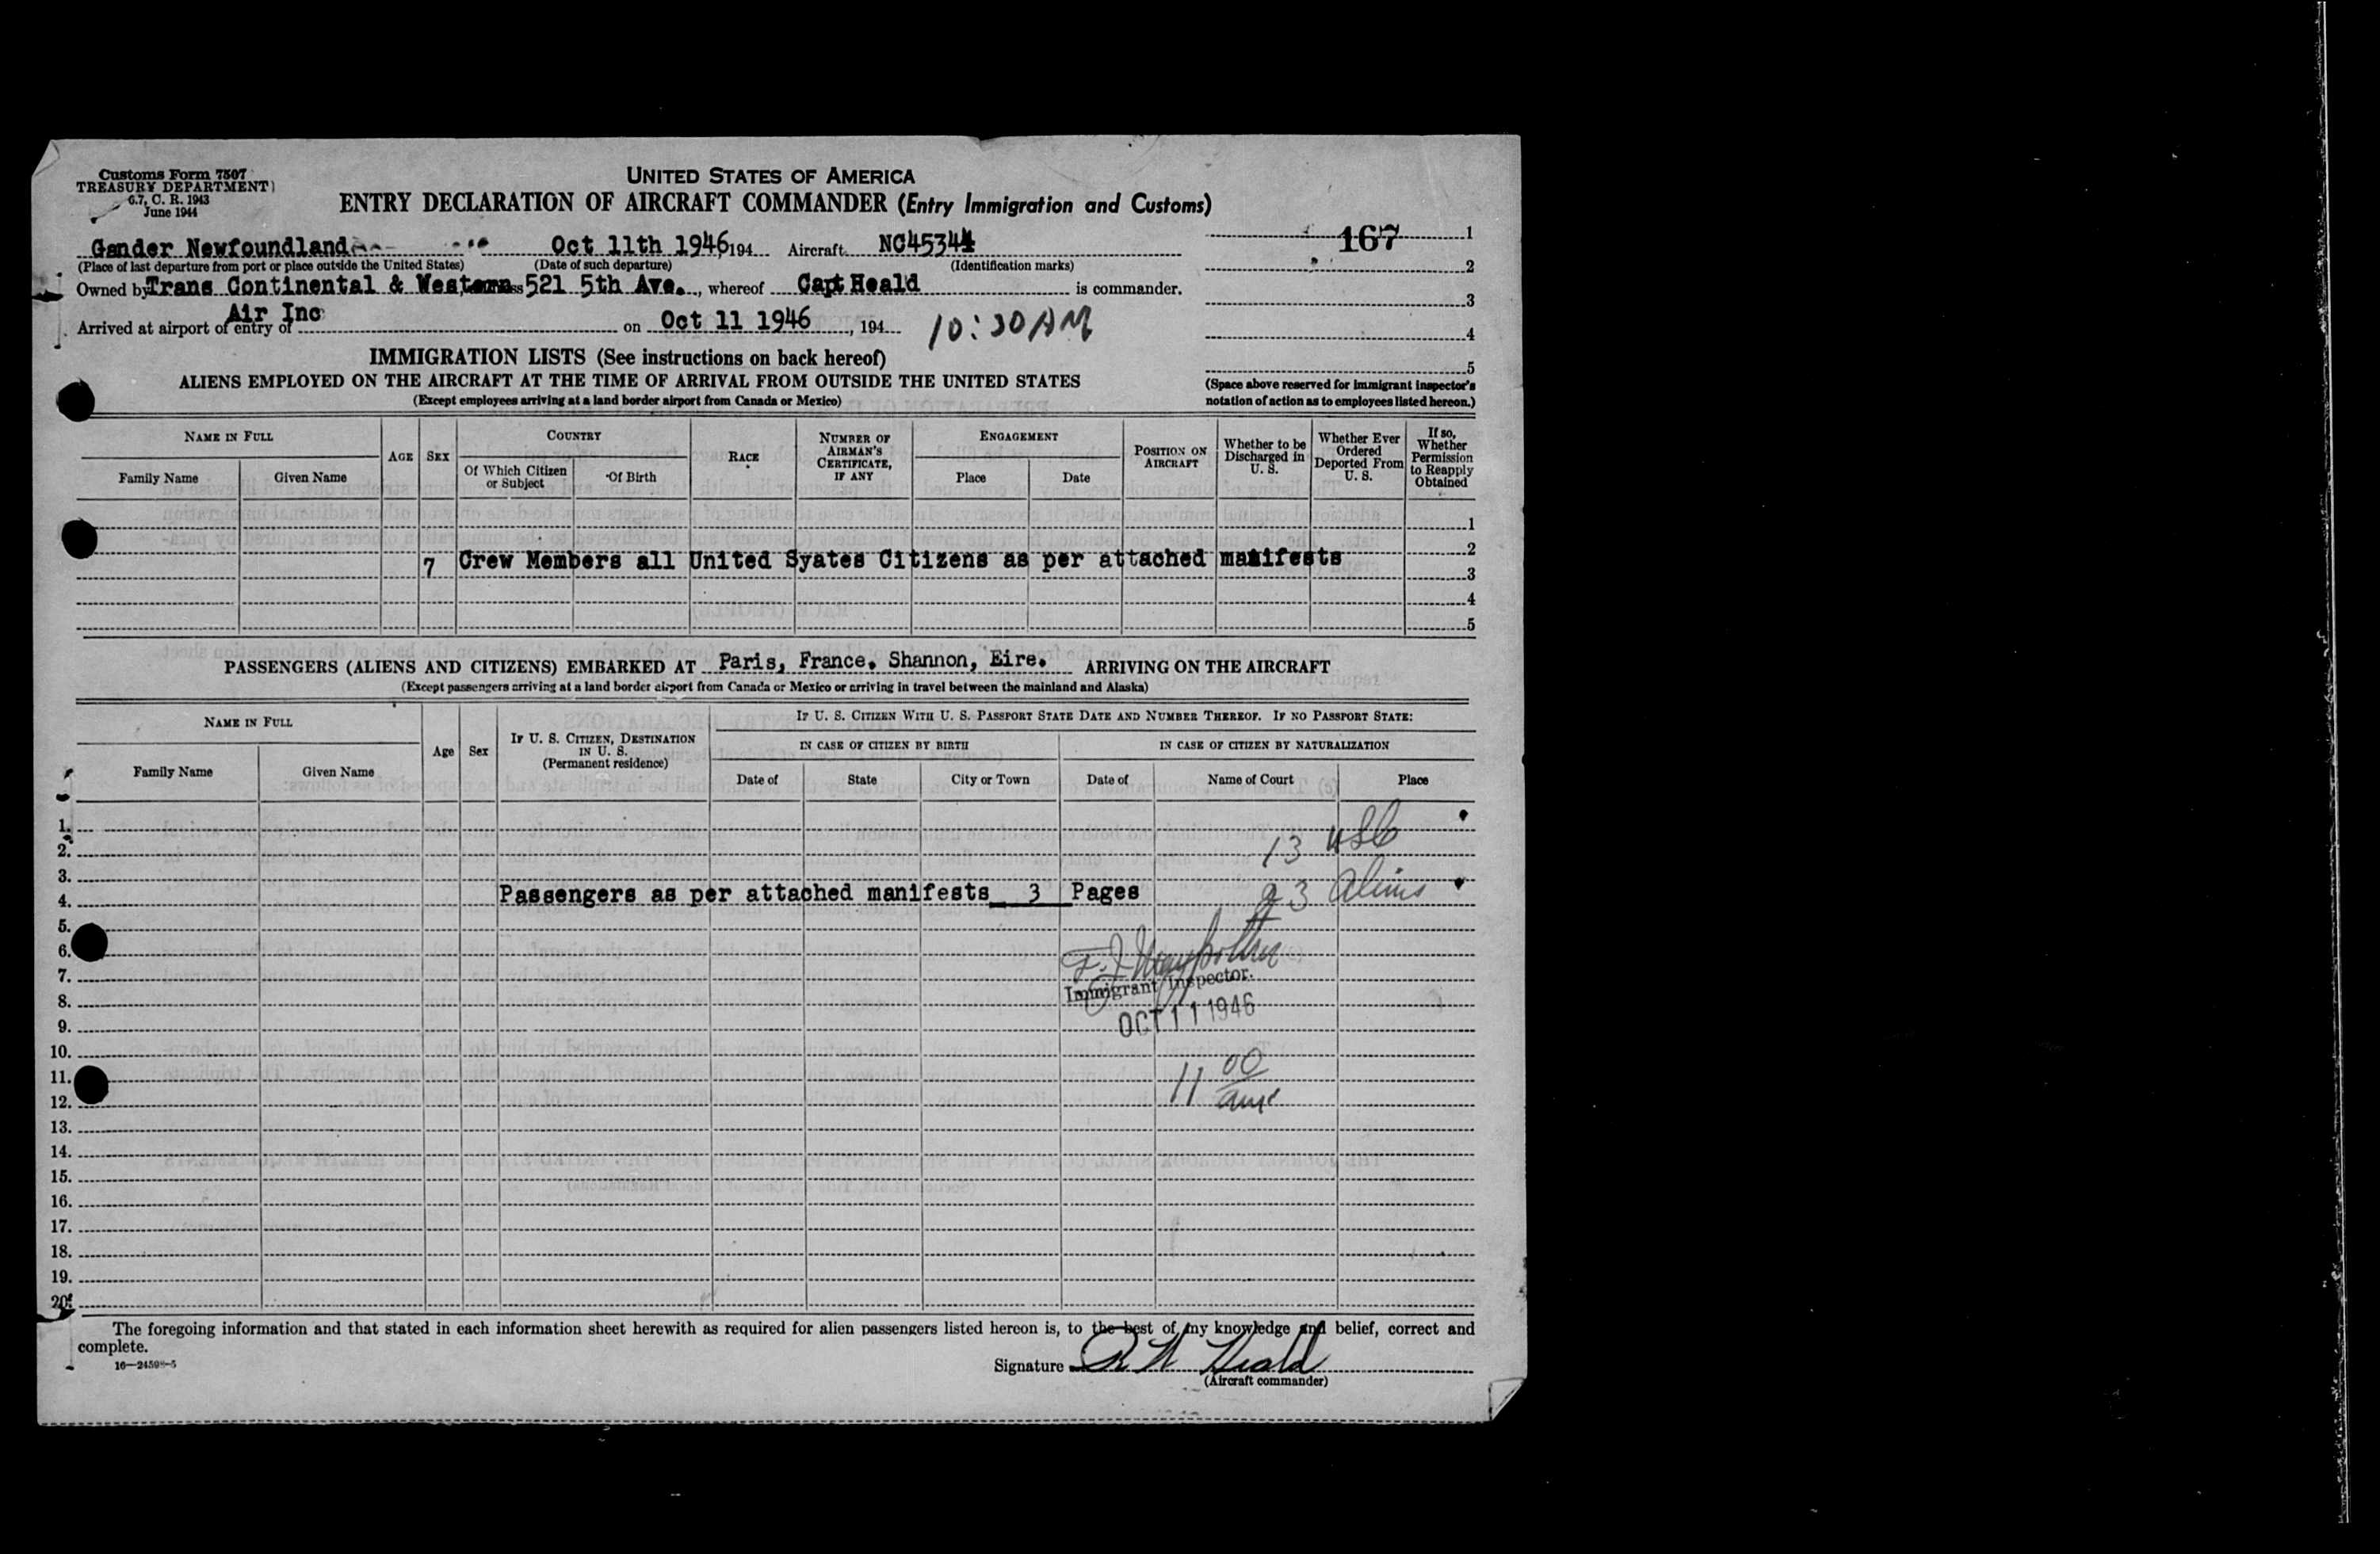 Customs Form 7507
TREASURY DEPARTMENT
6.7, C. R. 1943
June 1944
UNITED STATES OF AMERICA
ENTRY DECLARATION OF AIRCRAFT COMMANDER (Entry Immigration and Customs)
Gander Newfoundland Oct 11th 1946 194 Aircraft NC45344
167 1
(Place of last departure from port or place outside the United States) (Date of such departure) (Identification marks)
2
Owned by Trans Continental & Western 521 5th Ave., whereof Capt Heald is commander.
3
Air Inc
Arrived at airport of entry of on Oct 11 1946, 194 10:30 AM
4
IMMIGRATION LISTS (See instructions on back hereof)
5
ALIENS EMPLOYED ON THE AIRCRAFT AT THE TIME OF ARRIVAL FROM OUTSIDE THE UNITED STATES
(Except employees arriving at a land border airport from Canada or Mexico)
(Space above reserved for immigrant inspector's
notation of action as to employees listed hereon.)
NAME IN FULL
Family Name Given Name
AGE SEX
COUNTRY
Of Which Citizen
or Subject
Of Birth
RACE
NUMBER OF
AIRMAN'S
CERTIFICATE,
IF ANY
ENGAGEMENT
Place Date
POSITION ON
AIRCRAFT
Whether to be
Discharged in
U. S.
Whether Ever
Ordered
Deported From
U. S.
If so,
Whether
Permission
to Reapply
Obtained
1
2
7 Crew Members all United Syates Citizens as per attached manifests
3
4
5
PASSENGERS (ALIENS AND CITIZENS) EMBARKED AT Paris, France. Shannon, Eire. ARRIVING ON THE AIRCRAFT
(Except passengers arriving at a land border airport from Canada or Mexico or arriving in travel between the mainland and Alaska)
NAME IN FULL
Family Name Given Name
Age Sex
IF U. S. CITIZEN, DESTINATION
IN U. S.
(Permanent residence)
IF U. S. CITIZEN WITH U. S. PASSPORT STATE DATE AND NUMBER THEREOF. IF NO PASSPORT STATE:
IN CASE OF CITIZEN BY BIRTH IN CASE OF CITIZEN BY NATURALIZATION
Date of State City or Town Date of Name of Court Place
1.
2. 13 USC
3.
4. Passengers as per attached manifests 3 Pages 23 Aliens
5.
6.
7.
Immigrant Inspector.
8.
OCT 11 1946
9.
10.
11. 11 00
12. am
13.
14.
15.
16.
17.
18.
19.
20.
The foregoing information and that stated in each information sheet herewith as required for alien passengers listed hereon is, to the best of my knowledge and belief, correct and
complete.
Signature R N Heald
(Aircraft commander)